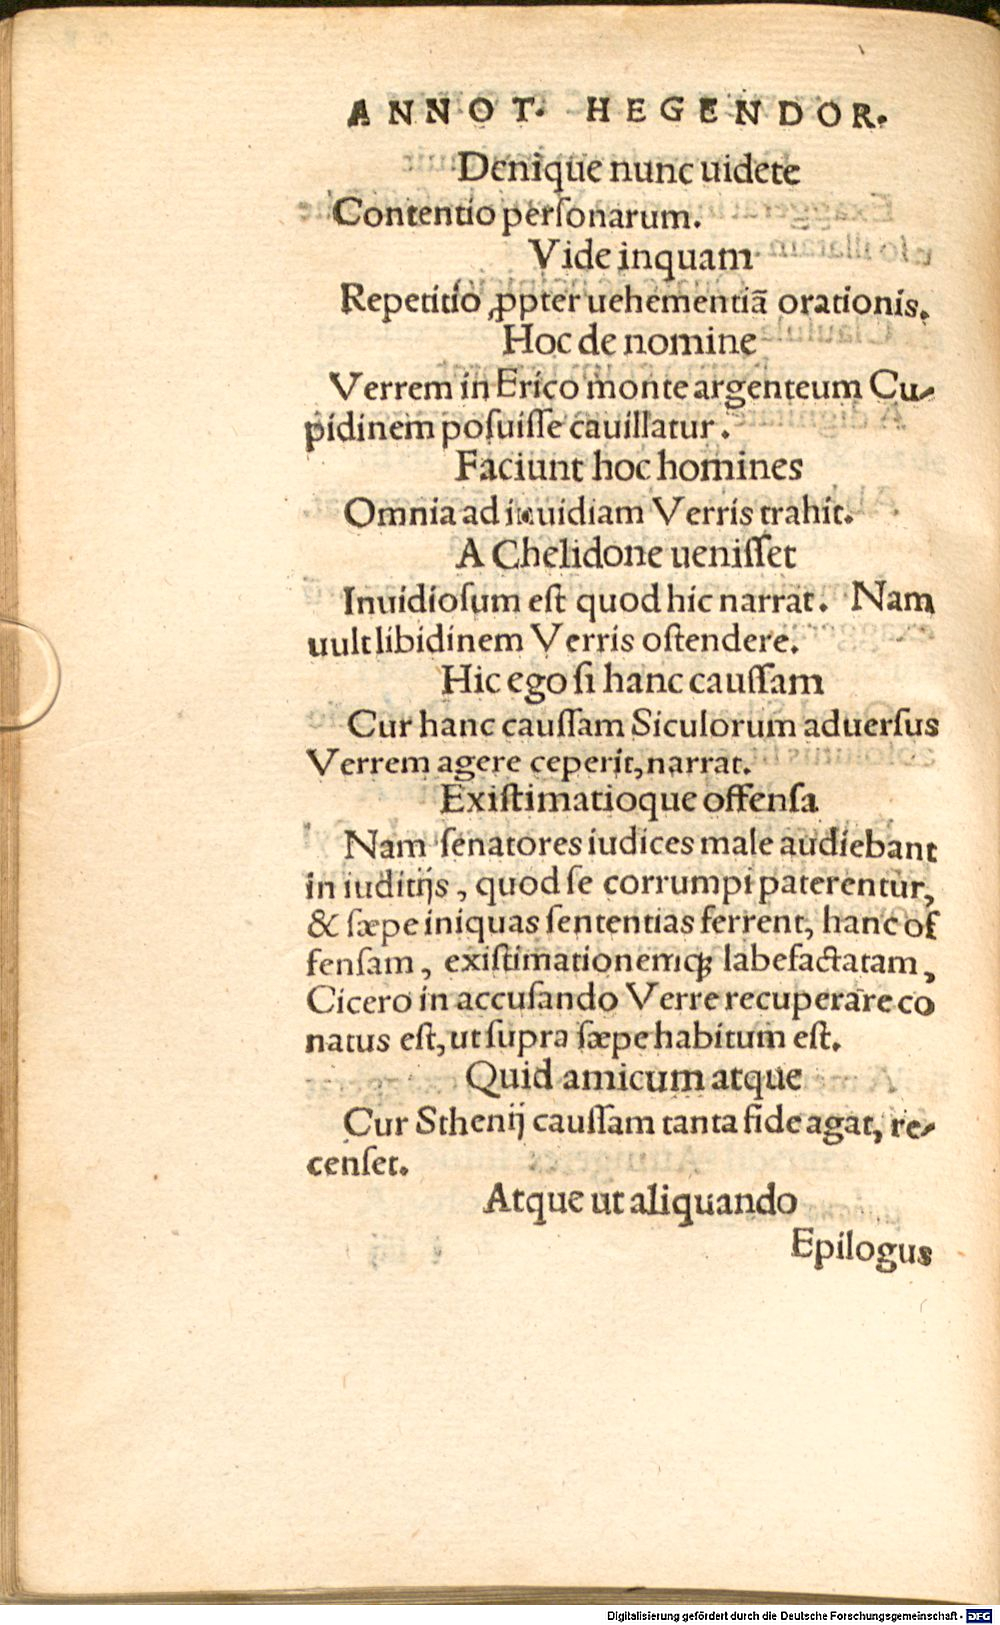 ANNOT. HEGENDOR.
Denique nunc uidete
Contentio perſonarum.
Vide inquam
Repetitio ꝓpter uehementiā orationis.
Hoc de nomine
Verrem in Erico monte argenteum Cu-
pidinem poſuiſſe cauillatur.
Faciunt hoc homines
Omnia ad inuidiam Verris trahit.
A Chelidone ueniſſet
Inuidioſum eſt quod hic narrat. Nam
uult libidinem Verris oſtendere.
Hic ego ſi hanc cauſſam
Cur hanc cauſſam Siculorum aduerſus
Verrem agere ceperit, narrat.
Exiſtimatioque offenſa
Nam ſenatores iudices male audiebant
in iuditijs, quod ſe corrumpi paterentur,
& ſæpe iniquas ſententias ferrent, hanc of
fenſam, exiſtimationemqꝫ labefactatam,
Cicero in accuſando Verre recuperare co
natus eſt, ut ſupra ſæpe habitum eſt.
Quid amicum atque
Cur Sthenij cauſſam tanta fide agat, re-
cenſet.
Atque ut aliquando
Epilogus
Digitalisierung gefördert durch die Deutsche Forschungsgemeinschaft - DFG